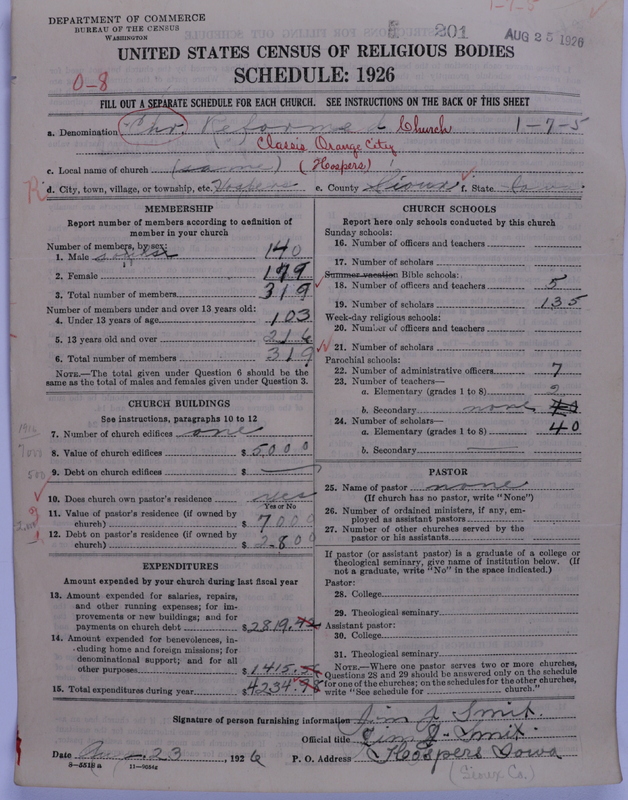 1-7-5
DEPARTMENT OF COMMERCE
BUREAU OF THE CENSUS
WASHINGTON
201
AUG 25 1926
UNITED STATES CENSUS OF RELIGIOUS BODIES
SCHEDULE: 1926
0-8
FILL OUT A SEPARATE SCHEDULE FOR EACH CHURCH. SEE INSTRUCTIONS ON THE BACK OF THIS SHEET
a. Denomination Chr. Reformed Church 1-7-5
Classis Orange City
c. Local name of church (same) (Hospers)
d. City, town, village, or township, etc. Hospers e. County Sioux f. State Iowa
MEMBERSHIP
Report number of members according to definition of
member in your church
Number of members, by sex:
1. Male 140
2. Female 179
3. Total number of members 319
Number of members under and over 13 years old:
4. Under 13 years of age 103
5. 13 years old and over 216
6. Total number of members 319
NOTE.—The total given under Question 6 should be the
same as the total of males and females given under Question 3.
CHURCH BUILDINGS
See instructions, paragraphs 10 to 12
7. Number of church edifices one
8. Value of church edifices $ 5,000
9. Debt on church edifices $
10. Does church own pastor's residence yes
Yes or No
11. Value of pastor's residence (if owned by
church) $ 7000
12. Debt on pastor's residence (if owned by
church) $ 2800
EXPENDITURES
Amount expended by your church during last fiscal year
13. Amount expended for salaries, repairs,
and other running expenses; for im-
provements or new buildings; and for
payments on church debt $ 2819.42
14. Amount expended for benevolences, in-
cluding home and foreign missions; for
denominational support; and for all
other purposes $ 1415.56
15. Total expenditures during year $ 4234.98
CHURCH SCHOOLS
Report here only schools conducted by this church
Sunday schools:
16. Number of officers and teachers
17. Number of scholars
Summer vacation Bible schools:
18. Number of officers and teachers 5
19. Number of scholars 135
Week-day religious schools:
20. Number of officers and teachers
21. Number of scholars
Parochial schools:
22. Number of administrative officers 7
23. Number of teachers—
a. Elementary (grades 1 to 8) 2
b. Secondary none
24. Number of scholars—
a. Elementary (grades 1 to 8) 40
b. Secondary
PASTOR
25. Name of pastor none
(If church has no pastor, write "None")
26. Number of ordained ministers, if any, em-
ployed as assistant pastors
27. Number of other churches served by the
pastor or his assistants
If pastor (or assistant pastor) is a graduate of a college or
theological seminary, give name of institution below. (If
not a graduate, write "No" in the space indicated.)
Pastor:
28. College
29. Theological seminary
Assistant pastor:
30. College
31. Theological seminary
NOTE.—Where one pastor serves two or more churches,
Questions 28 and 29 should be answered only on the schedule
for one of the churches; on the schedules for the other churches,
write "See schedule for church."
Signature of person furnishing information Jim J Smit.
Official title Jim J. Smit.
Date Aug. 23, 1926 P. O. Address Hospers Iowa
8-5518 a 11-9084
(Sioux Co.)